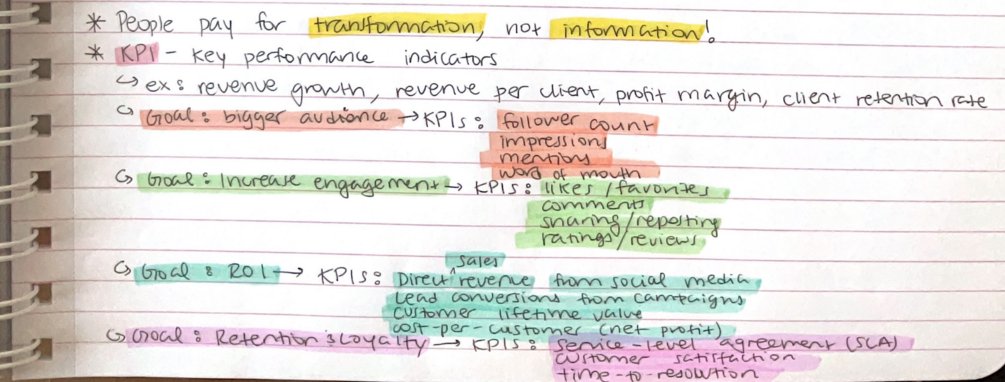 * People pay for transformation, not information!
* KPI - key performance indicators
↳ ex: revenue growth, revenue per client, profit margin, client retention rate
↳ Goal: bigger audience → KPIs: follower count
impressions
mentions
word of mouth
↳ Goal: Increase engagement → KPIs: likes/favorites
comments
sharing/reposting
ratings/reviews
↳ Goal: ROI → KPIs: Direct sales revenue from social media
Lead conversions from campaigns
customer lifetime value
cost-per-customer (net profit)
↳ Goal: Retention & Loyalty → KPIs: Service-level agreement (SLA)
customer satisfaction
time-to-resolution